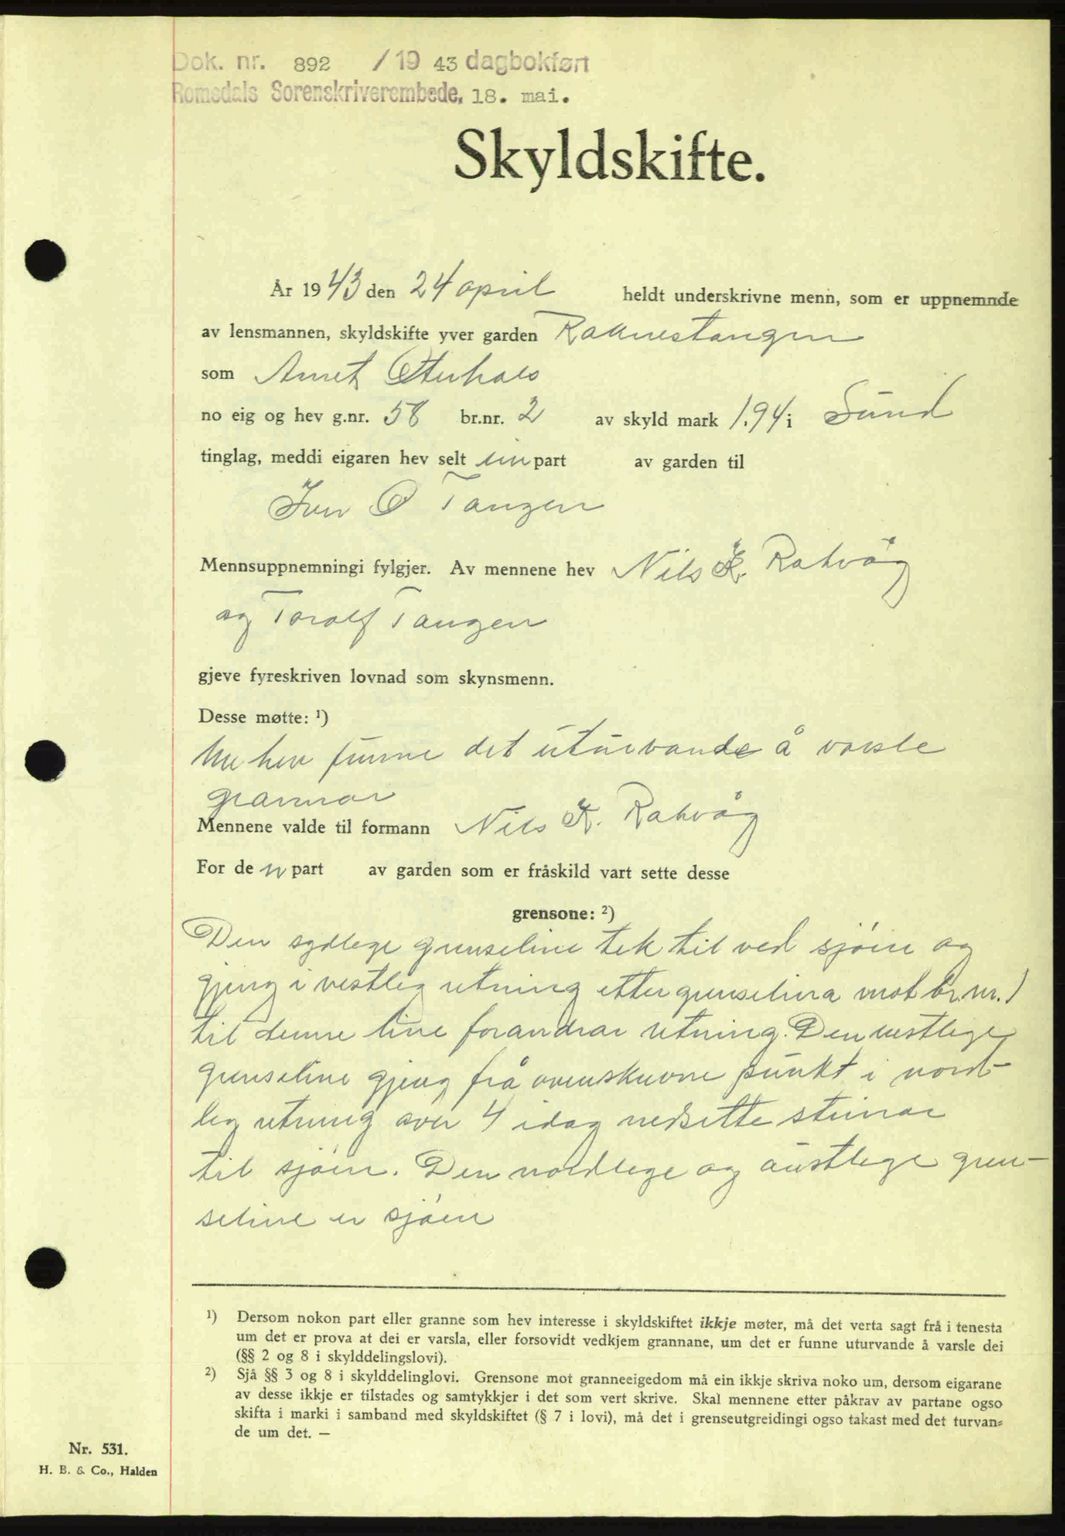 Dok. nr. 892 / 19 43 dagbokført
Romsdals Sorenskriverembede, 18. mai.
Skyldskifte.
År 1943 den 24 april heldt underskrivne menn, som er uppnemnde
av lensmannen, skyldskifte yver garden Raknestangen
som Anret Oterhals
no eig og hev g.nr. 58 br.nr. 2 av skyld mark 1.94 i Sund
tinglag, meddi eigaren hev selt ein part av garden til
Iver O Tangen
Mennsuppnemningi fylgjer. Av mennene hev Nils K. Rakvåg
og Toralf Tangen
gjeve fyreskriven lovnad som skynsmenn.
Desse møtte: ¹)
Me hev funne det uturvande å varsle
grannar
Mennene valde til formann Nils K. Rakvåg
For den part av garden som er fråskild vart sette desse
grensone: ²)
Den sydlege grenseline tek til ved sjöen og
gjeng i vestleg retning etter grenselina mot br.nr. 1
til denne line forandrar retning. Den vestlige
grenseline gjeng frå ovenskrevne punkt i nord-
leg retning over 4 idag nedsette steinar
til sjöen. Den nordlege og austlege gren-
seline er sjöen
¹) Dersom nokon part eller granne som hev interesse i skyldskiftet ikkje møter, må det verta sagt frå i tenesta
um det er prova at dei er varsla, eller forsovidt vedkjem grannane, um det er funne uturvande å varsle dei
(§§ 2 og 8 i skylddelingslovi).
²) Sjå §§ 3 og 8 i skylddelinglovi. Grensone mot granneeigedom må ein ikkje skriva noko um, dersom eigarane
av desse ikkje er tilstades og samtykkjer i det som vert skrive. Skal mennene etter påkrav av partane ogso
skifta i marki i samband med skyldskiftet (§ 7 i lovi), må det i grenseutgreidingi ogso takast med det turvan=
de um det. —
Nr. 531.
H. B. & Co., Halden